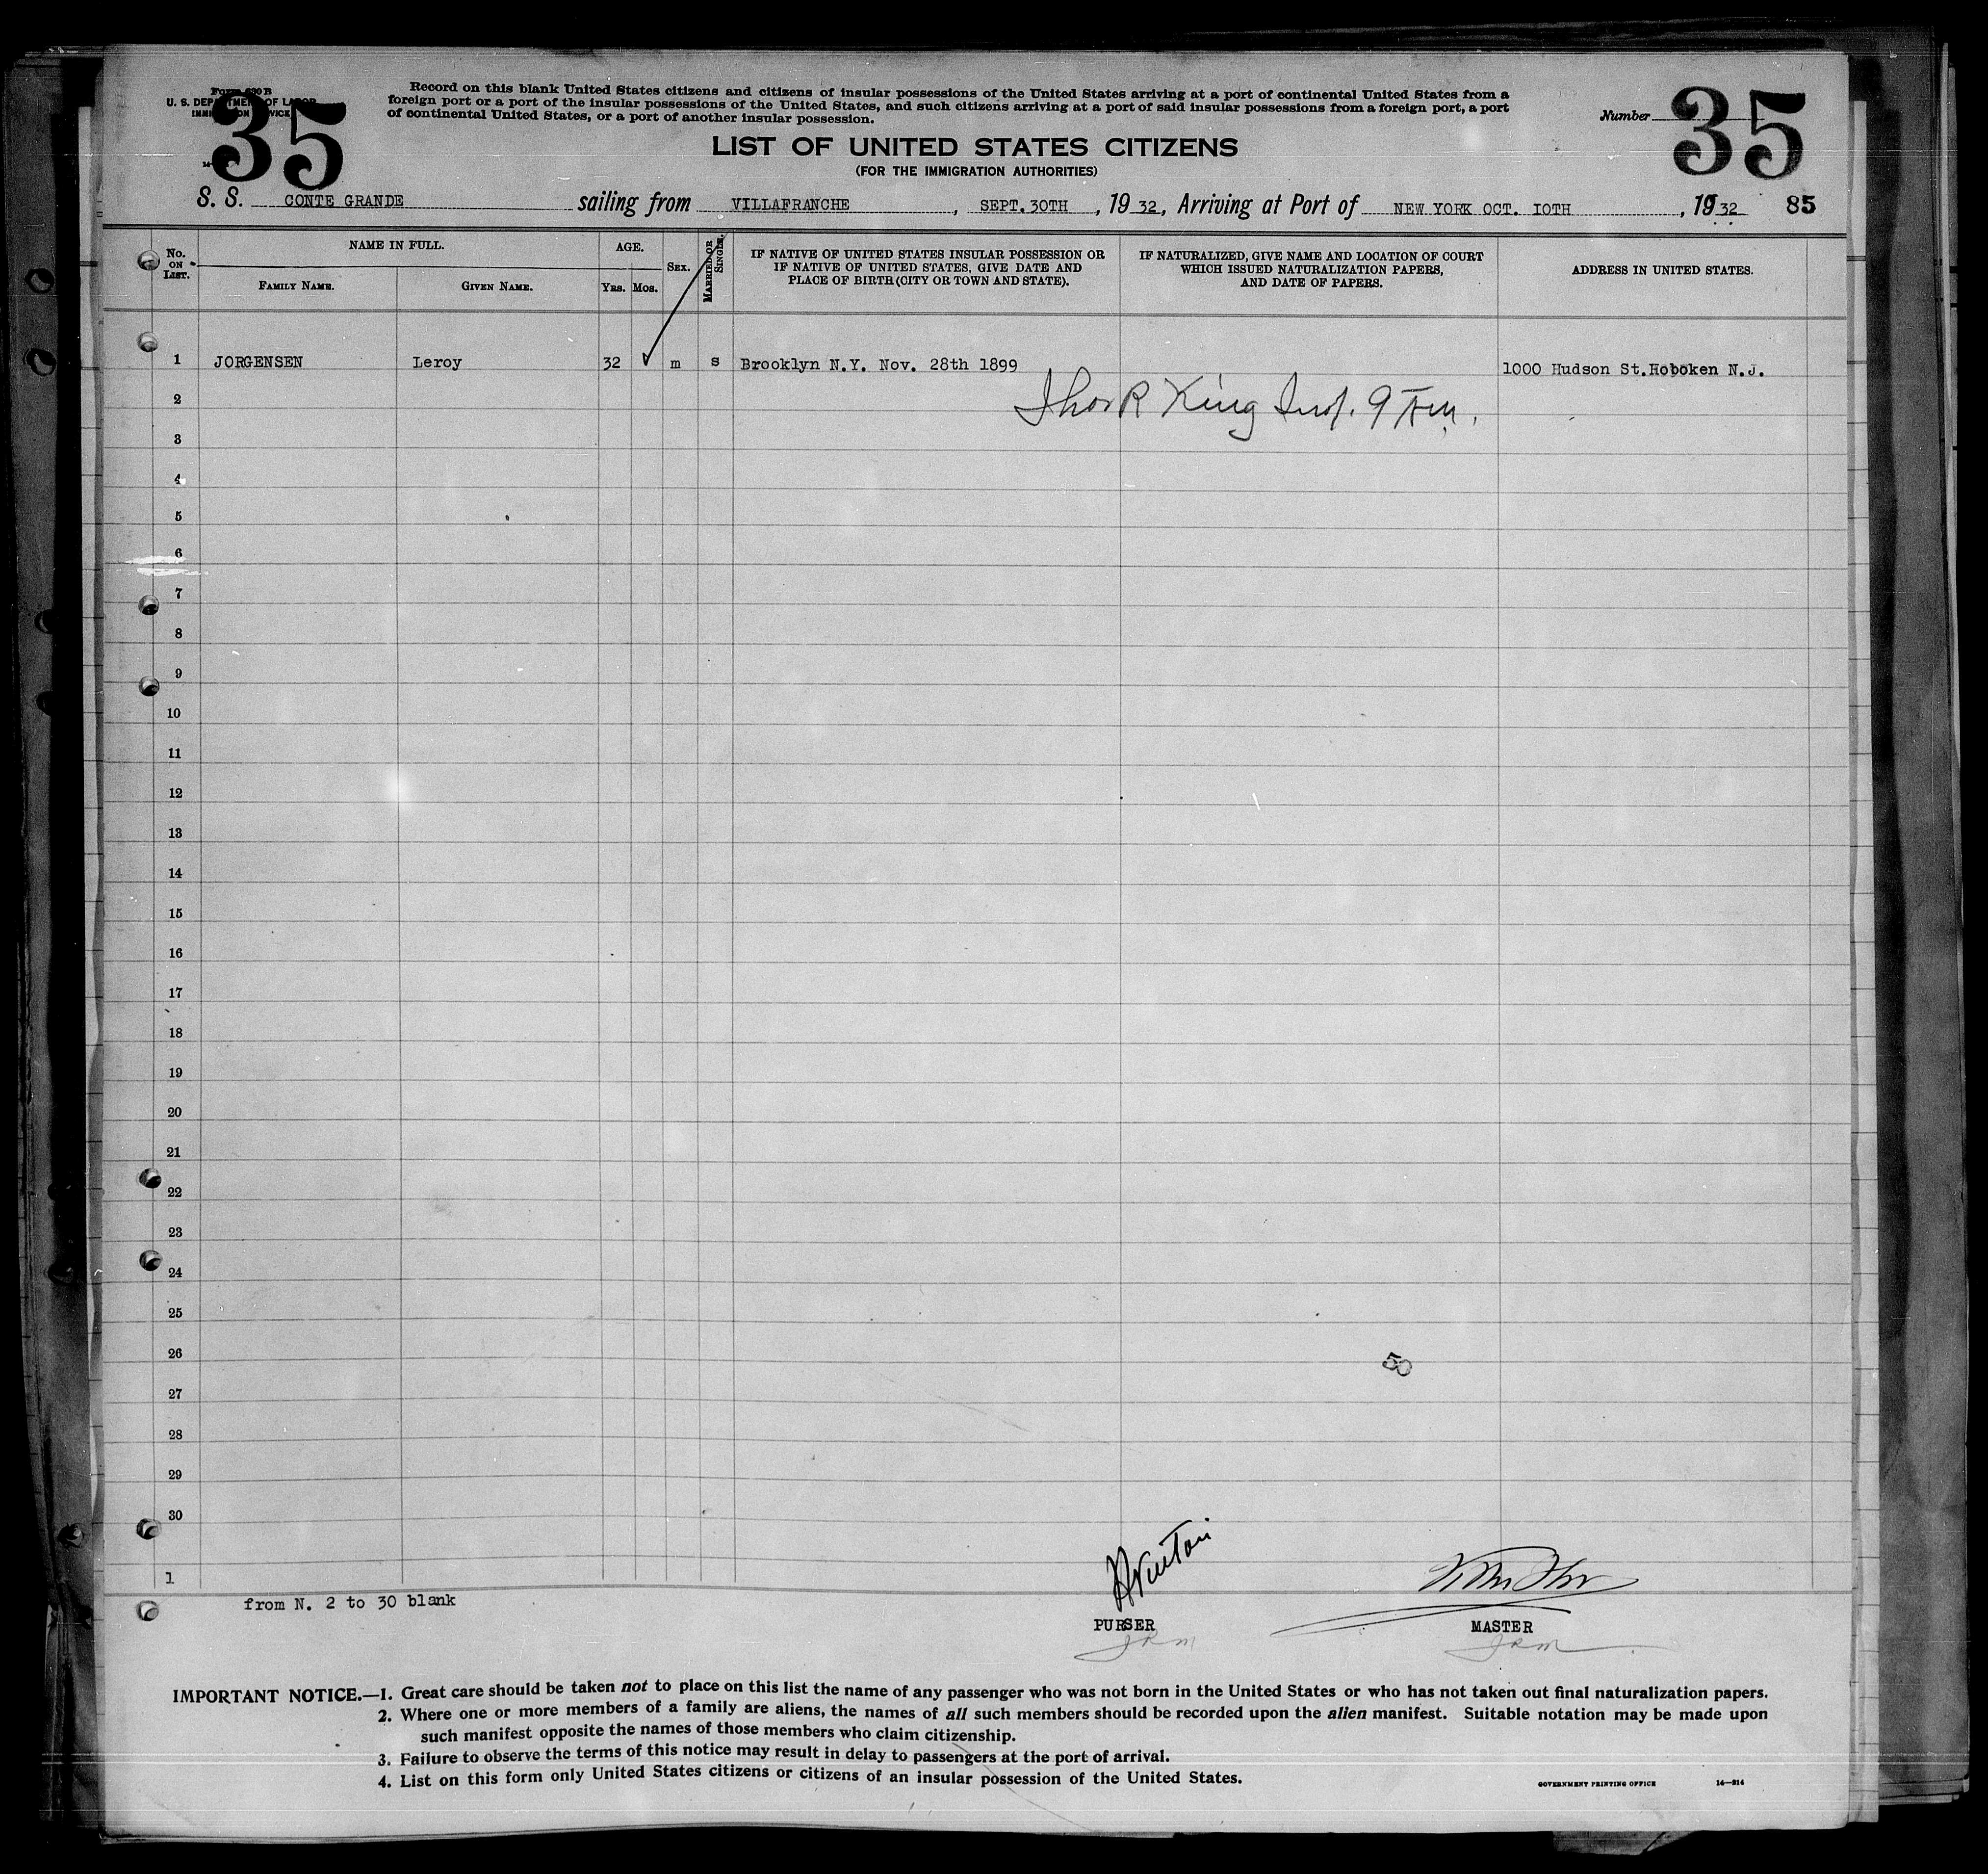 Form 630 B
U. S. DEPARTMENT OF LABOR
IMMIGRATION SERVICE
35
Record on this blank United States citizens and citizens of insular possessions of the United States arriving at a port of continental United States from a
foreign port or a port of the insular possessions of the United States, and such citizens arriving at a port of said insular possessions from a foreign port, a port
of continental United States, or a port of another insular possession.
Number 35
LIST OF UNITED STATES CITIZENS
(FOR THE IMMIGRATION AUTHORITIES)
S. S. CONTE GRANDE sailing from VILLAFRANCHE, SEPT.30TH, 1932, Arriving at Port of NEW YORK OCT. IOTH, 1932 85
No. ON LIST.
NAME IN FULL.
FAMILY NAME.
GIVEN NAME.
AGE.
YRS. MOS.
SEX.
MARRIED OR SINGLE.
IF NATIVE OF UNITED STATES INSULAR POSSESSION OR
IF NATIVE OF UNITED STATES, GIVE DATE AND
PLACE OF BIRTH (CITY OR TOWN AND STATE).
IF NATURALIZED, GIVE NAME AND LOCATION OF COURT
WHICH ISSUED NATURALIZATION PAPERS,
AND DATE OF PAPERS.
ADDRESS IN UNITED STATES.
1 JORGENSEN Leroy 32 m s Brooklyn N.Y. Nov. 28th 1899 1000 Hudson St.Hoboken N.J.
2 Thos R King Insp. 9
3
4
5
6
7
8
9
10
11
12
13
14
15
16
17
18
19
20
21
22
23
24
25
26 50
27
28
29
30
1
from N. 2 to 30 blank
PURSER MASTER
JRM JRM
IMPORTANT NOTICE.—1. Great care should be taken not to place on this list the name of any passenger who was not born in the United States or who has not taken out final naturalization papers.
2. Where one or more members of a family are aliens, the names of all such members should be recorded upon the alien manifest. Suitable notation may be made upon
such manifest opposite the names of those members who claim citizenship.
3. Failure to observe the terms of this notice may result in delay to passengers at the port of arrival.
4. List on this form only United States citizens or citizens of an insular possession of the United States.
GOVERNMENT PRINTING OFFICE 14—214